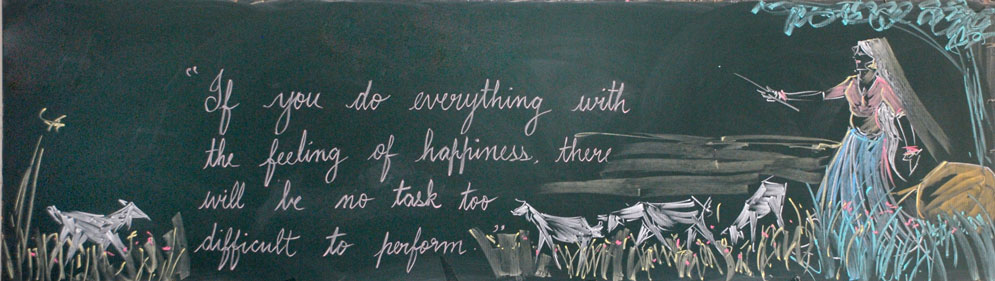 “If you do everything with
the feeling of happiness, there
will be no task too
difficult to perform.”